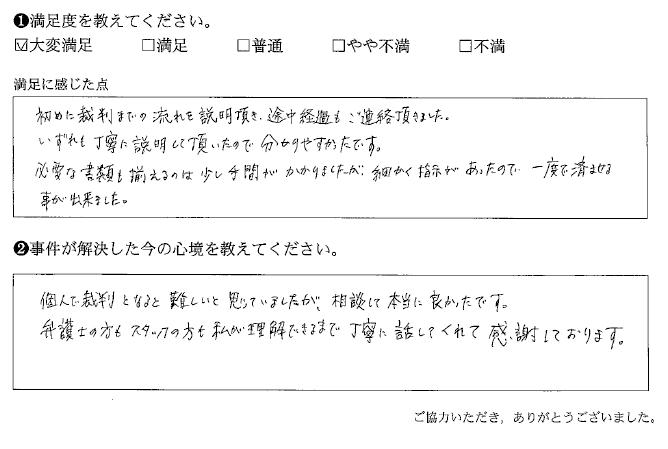 ❶満足度を教えてください。
☑大変満足 □満足 □普通 □やや不満 □不満
満足に感じた点
初めに裁判までの流れを説明頂き、途中経過もご連絡頂きました。
いずれも丁寧に説明して頂いたので分かりやすかったです。
必要な書類も揃えるのは少し手間がかかりましたが、細かく指示があったので、一度で済ませる
事が出来ました。
❷事件が解決した今の心境を教えてください。
個人で裁判となると難しいと思っていましたが、相談して本当に良かったです。
弁護士の方もスタッフの方も私が理解できるまで丁寧に話してくれて感謝しております。
ご協力いただき、ありがとうございました。